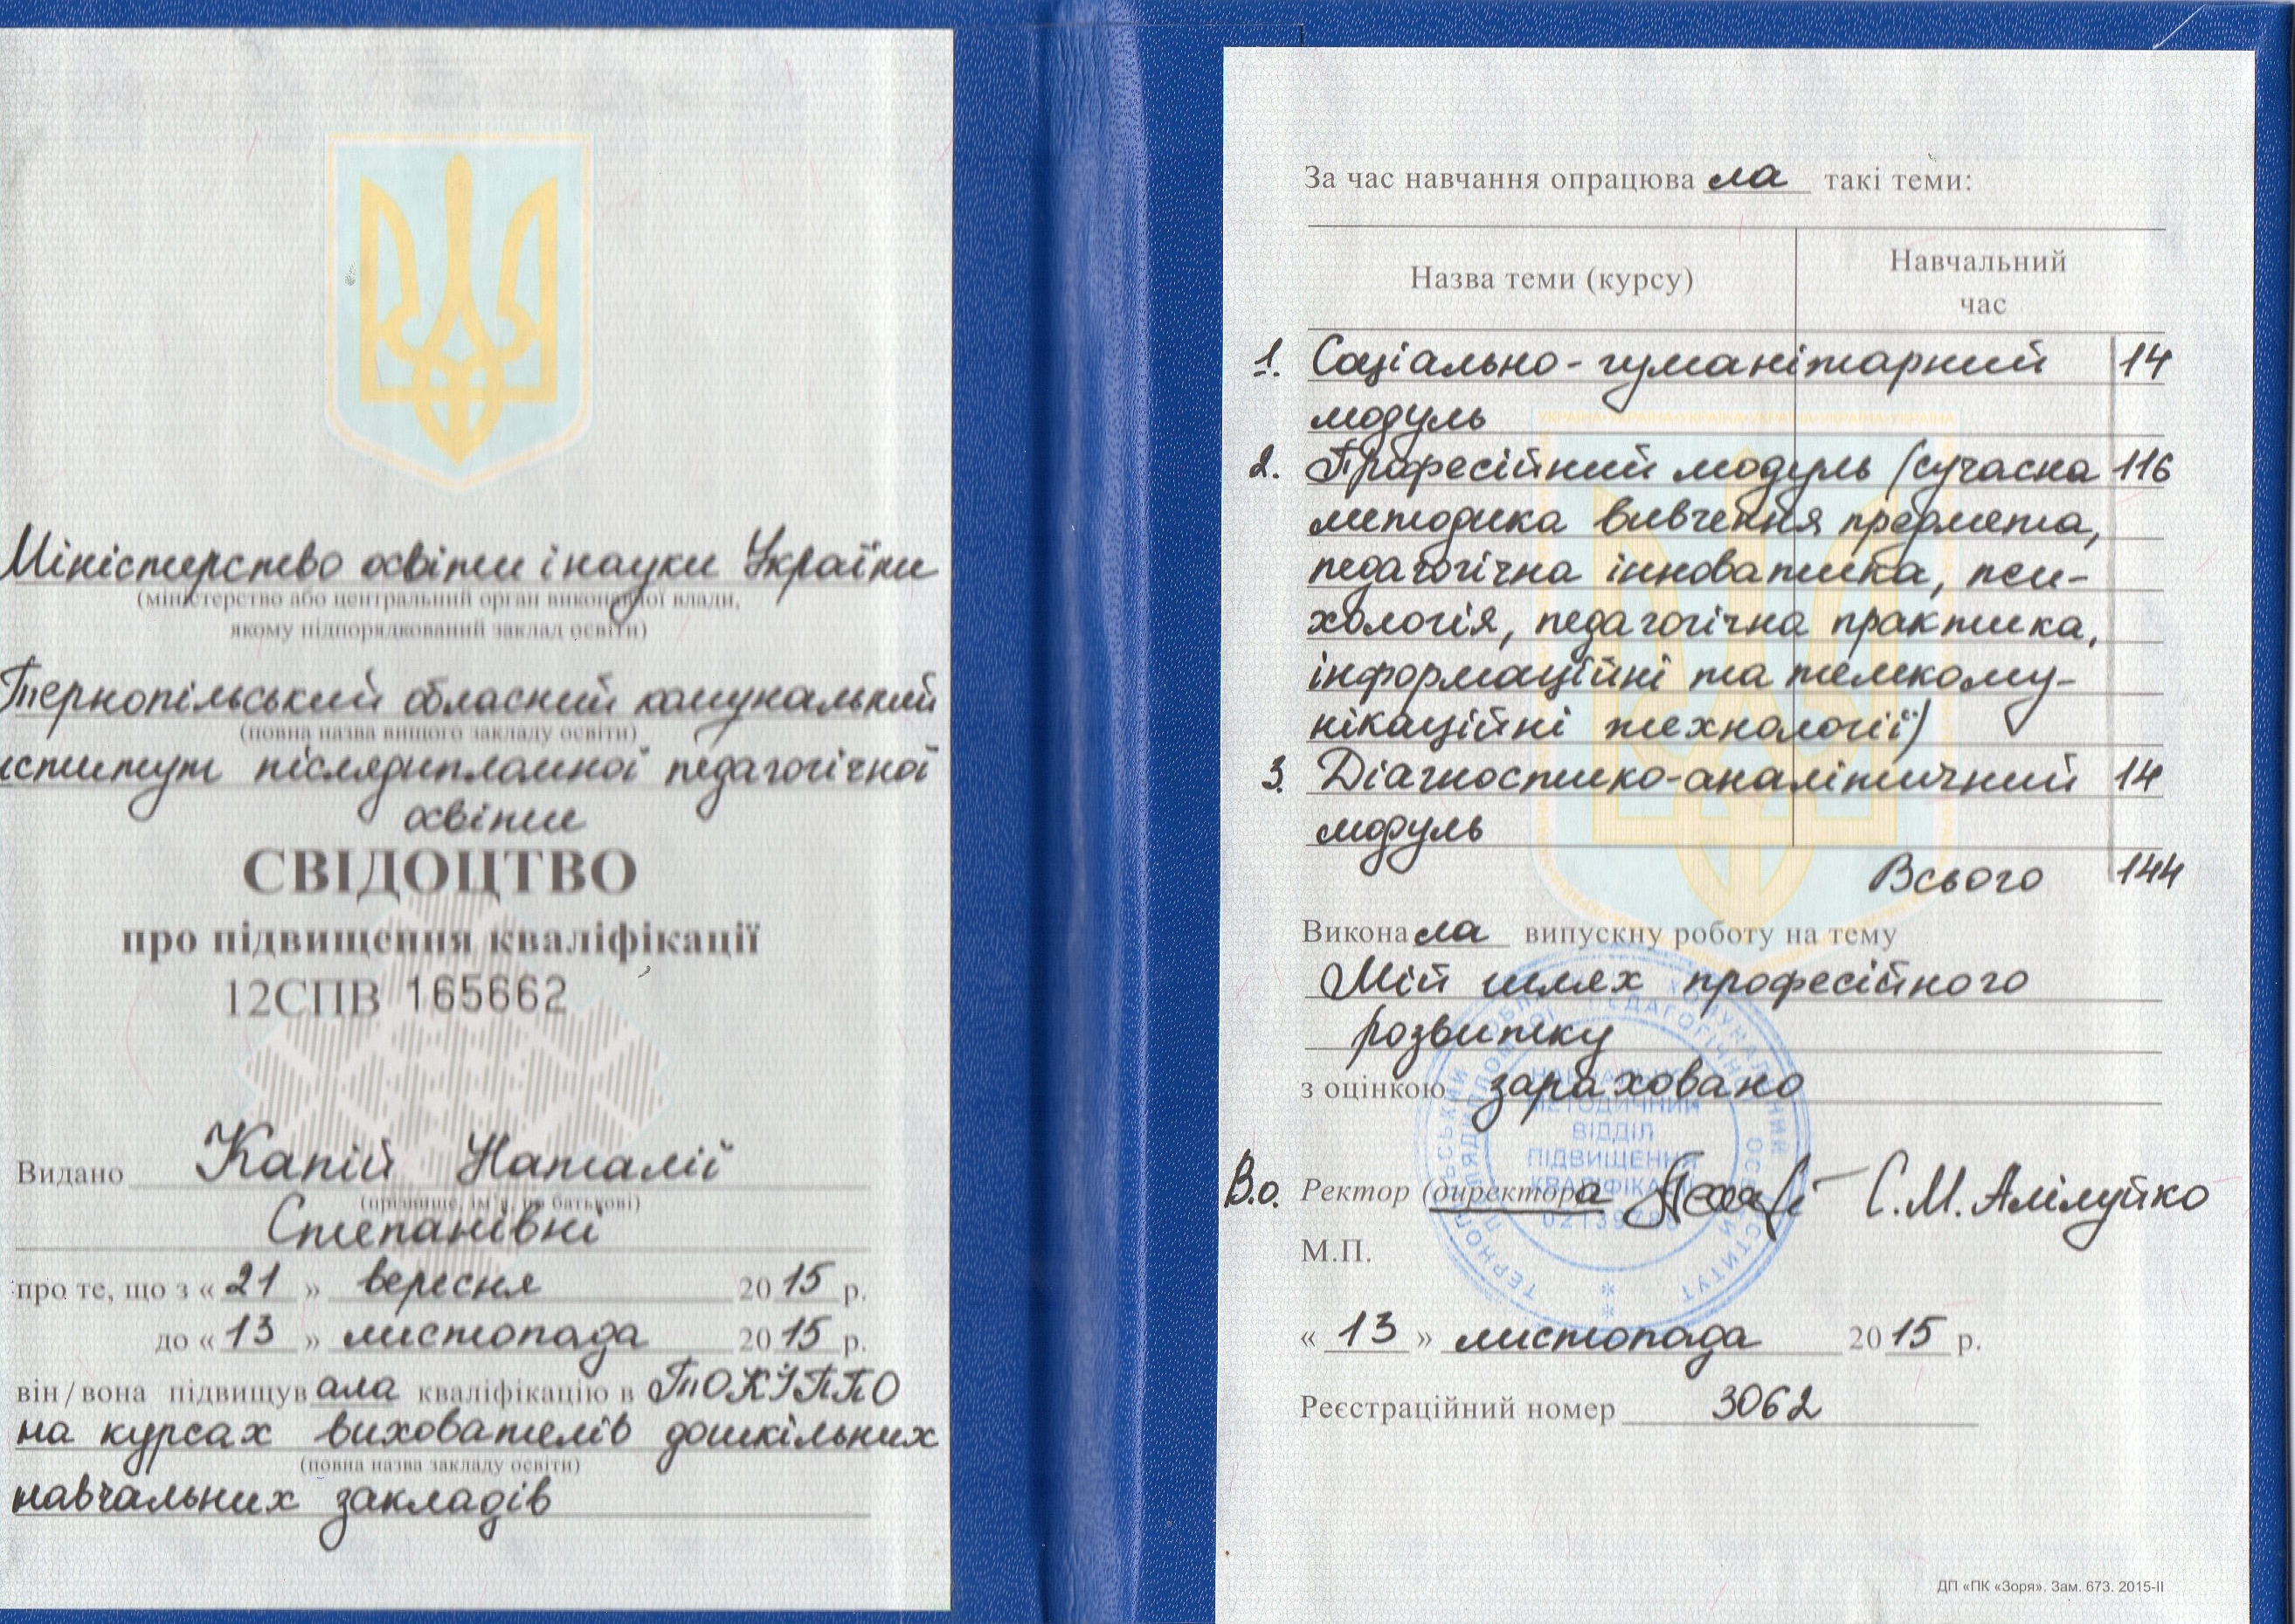 Міністерство освіти і науки України
(міністерство або центральний орган виконавчої влади,
якому підпорядкований заклад освіти)
Тернопільський обласний комунальний
(повна назва вищого закладу освіти)
нститут післядипломної педагогічної
освіти
СВІДОЦТВО
про підвищення кваліфікації
12СПВ 165662
Видано Капій Наталії
(прізвище, ім'я, по батькові)
Степанівні
про те, що з « 21 » вересня 2015 р.
до « 13 » листопада 2015 р.
він/вона підвищувала кваліфікацію в ТОКІППО
на курсах вихователів дошкільних
(повна назва закладу освіти)
навчальних закладів
За час навчання опрацювала такі теми:
Назва теми (курсу)
Навчальний
час
1. Соціально-гуманітарний 14
модуль
2. Професійний модуль (сучасна 116
методика вивчення предмета,
педагогічна інноватика, пси-
хологія, педагогічна практика,
інформаційні та телекому-
нікаційні технології)
3. Діагностико-аналітичний 14
модуль
Всього 144
Виконала випускну роботу на тему
Мій шлях професійного
розвитку
з оцінкою зараховано
МЕТОДИЧНИЙ
ВІДДІЛ
ПІДВИЩЕННЯ
В.о. Ректор (директора С.М. Алілуйко
М.П.
« 13 » листопада 2015 р.
Реєстраційний номер 3062
ДП «ПК «Зоря». Зам. 673. 2015-II